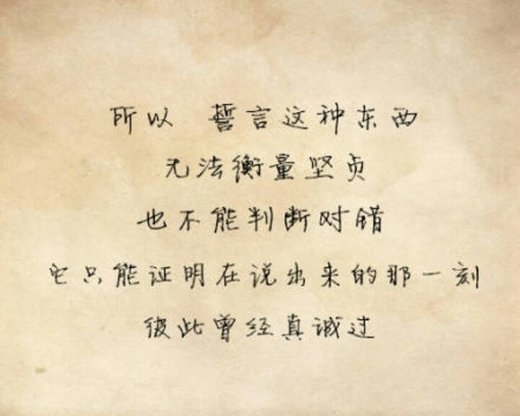 所以 誓言这种东西
无法衡量坚贞
也不能判断对错
它只能证明在说出来的那一刻
彼此曾经真诚过